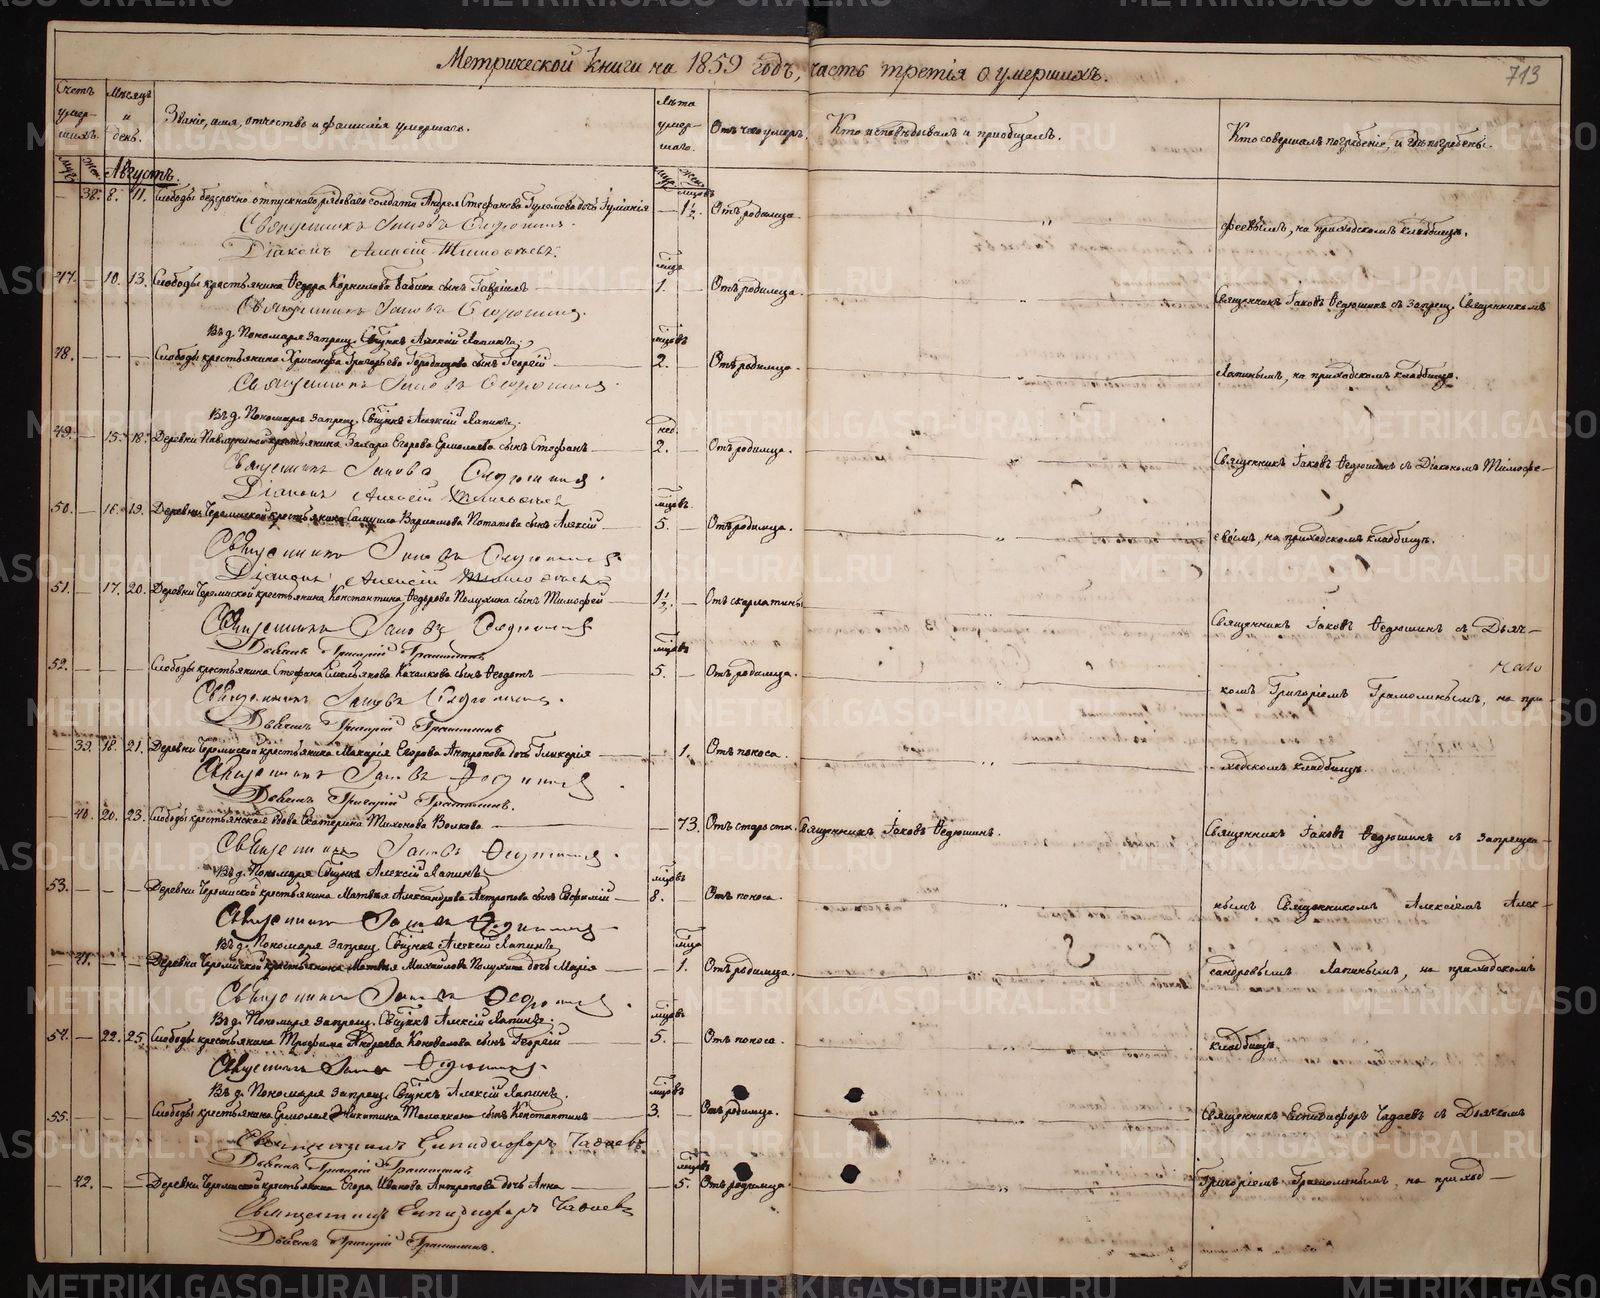 Метрической книги на 1859 годъ, часть третія о умершихъ.
713
Счетъ умер-шихъ.
Мѣсяцъ и день.
Званіе, имя, отчество и фамилія умершаго.
Лѣта умер-шаго.
Отъ чего умеръ.
Кто исповѣдывалъ и пріобщалъ.
Кто совершалъ погребеніе, и гдѣ погребены.
Муж. Жен. Августъ. Муж. Жен.
мѣсяцъ
38. 8. 11. Слободы безсрочно-отпускнаго рядоваго солдата Андрея Стефанова дочь Іуліанія 1½. Отъ родимца.
Священникъ Іаковъ Ѳедюшинъ.
Діаконъ Алексій Тимоѳеевъ.
феевымъ, на приходскомъ кладбищѣ.
мѣсц
47. 10. 13. Слободы крестьянина Ѳедора Корнилова Бабина сынъ Гавріилъ 1. Отъ родимца.
Священникъ Іаковъ Ѳедюшинъ.
Священникъ Іаковъ Ѳедюшинъ съ запрещ. Священникомъ
Въ д. Пономаря запрещ. Свщнкъ Алексій Лапинъ.
мсцовъ
48. Слободы крестьянина Хрисанфа Григорьева сынъ Георгій 2. Отъ родимца.
Священникъ Іаковъ Ѳедюшинъ.
Лапинымъ, на приходскомъ кладбищѣ.
Въ д. Пономаря запрещ. Свщнкъ Алексій Лапинъ.
нед.
49. 15. 18. Деревни крестьянина Захара Егорова Ермолаева сынъ Стефанъ 2. Отъ родимца.
Священникъ Іаковъ Ѳедюшинъ.
Діаконъ Алексій Тимоѳеевъ
Священникъ Іаковъ Ѳедюшинъ съ Діакономъ Тимоѳе-
мсцовъ
50. 16. 19. Деревни Черемиской крестьянина Самуила Варламова Потапова сынъ Алексій 5. Отъ родимца.
Священникъ Іаковъ Ѳедюшинъ
Діаконъ Алексій Тимоѳеевъ
евымъ, на приходскомъ кладбищѣ.
51. 17. 20. Деревни Черемиской крестьянина Константина Ѳедорова Полухина сынъ Тимоѳей 1½. Отъ скарлатины
Священникъ Іаковъ Ѳедюшинъ
Дьячекъ Григорій Грамолинъ
Священникъ Іаковъ Ѳедюшинъ съ Дьяч-
мсцовъ
52. Слободы крестьянина Стефана Емельянова сынъ Ѳеодотъ 5. Отъ родимца.
Священникъ Іаковъ Ѳедюшинъ.
Дьячекъ Григорій Грамолинъ
комъ Григоріемъ Грамолинымъ, на при-
39. 18. 21. Деревни Черемиской крестьянина Макарія Егорова Антропова дочь Гликерія 1. Отъ поноса.
Священникъ Іаковъ Ѳедюшинъ
Дьячекъ Григорій Грамолинъ.
ходскомъ кладбищѣ.
40. 20. 23. Слободы крестьянская вдова Екатерина Тихонова Волкова 73. Отъ старости. Священникъ Іаковъ Ѳедюшинъ.
Священникъ Іаковъ Ѳедюшинъ.
Священникъ Іаковъ Ѳедюшинъ съ запрещен-
Въ д. Пономаря Свщнкъ Алексій Лапинъ
мсцовъ
53. Деревни Черемиской крестьянина Матвѣя Александрова Антропова сынъ Евфимій 8. Отъ поноса.
Священникъ Іаковъ Ѳедюшинъ
нымъ Священникомъ Алексіемъ Алек-
Въ д. Пономаря запрещ. Свщнкъ Алексій Лапинъ
мсца
41. Деревни Черемиской крестьянина Матвѣя Михайлова Полухина дочь Марія 1. Отъ родимца.
Священникъ Іаковъ Ѳедюшинъ.
сандровымъ Лапинымъ, на приходскомъ
Въ д. Пономаря запрещ. Свщнкъ Алексій Лапинъ.
мсцовъ
54. 22. 25. Слободы крестьянина Трофима Андреева Коновалова сынъ Георгій 5. Отъ поноса.
Священникъ Іаковъ Ѳедюшинъ.
кладбищѣ.
Въ д. Пономаря запрещ. Свщнкъ Алексій Лапинъ.
мсцовъ
55. Слободы крестьянина Ермолая Никитина сынъ Константинъ 3. Отъ родимца.
Священникъ Епидифоръ Чадаевъ
Дьячекъ Григорій Грамолинъ
Священникъ Епидифоръ Чадаевъ съ Дьячкомъ
мсцовъ
42. Деревни Черемиской крестьянина Егора Иванова Антропова дочь Анна 5. Отъ родимца.
Священникъ Епидифоръ Чадаевъ
Дьячекъ Григорій Грамолинъ.
Григоріемъ Грамолинымъ, на приход-
METRIKI.GASO-URAL.RU